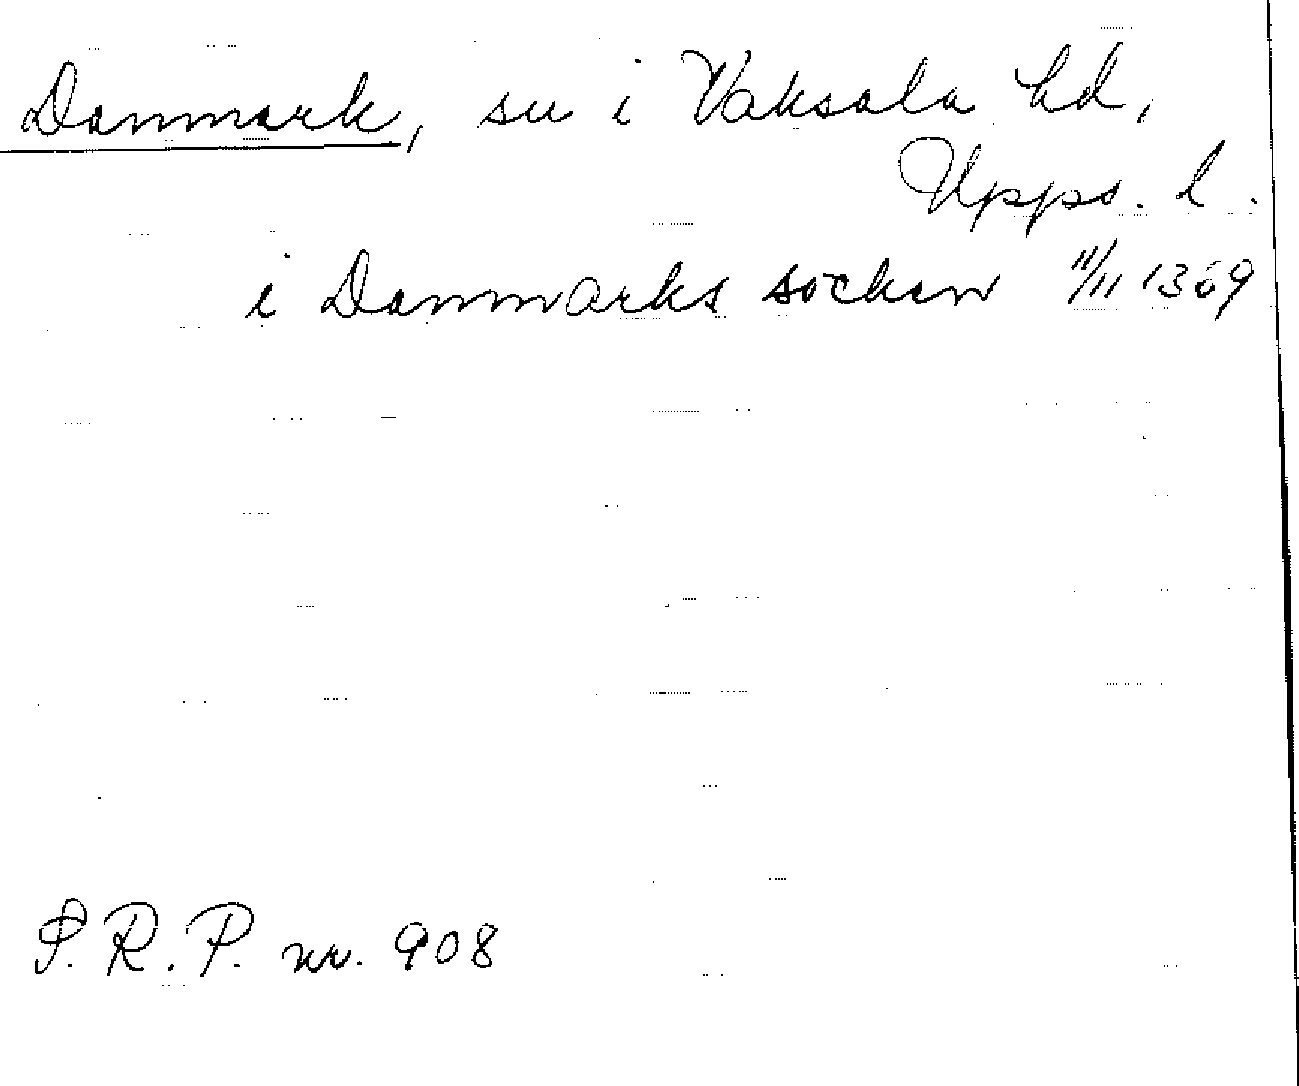 Danmark, sn i Vaksala hd,
Upps. l.
i Danmarks sockn 11/11 1369
S.R.P. nr. 908